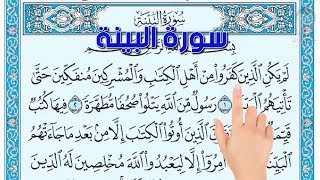 سُورَةُ الْبَيِّنَةِ
سورة البينة
لَمْ يَكُنِ الَّذِينَ كَفَرُوا مِنْ أَهْلِ الْكِتَٰبِ وَالْمُشْرِكِينَ مُنفَكِّينَ حَتَّىٰ
تَأْتِيَهُمُ ١ رَسُولٌ مِّنَ اللَّهِ يَتْلُوا صُحُفًا مُّطَهَّرَةً ٢ فِيهَا كُتُبٌ
الَّذِينَ أُوتُوا الْكِتَٰبَ إِلَّا مِنۢ بَعْدِ مَا جَاءَتْهُمُ
أُمِرُوا إِلَّا لِيَعْبُدُوا اللَّهَ مُخْلِصِينَ لَهُ الدِّينَ